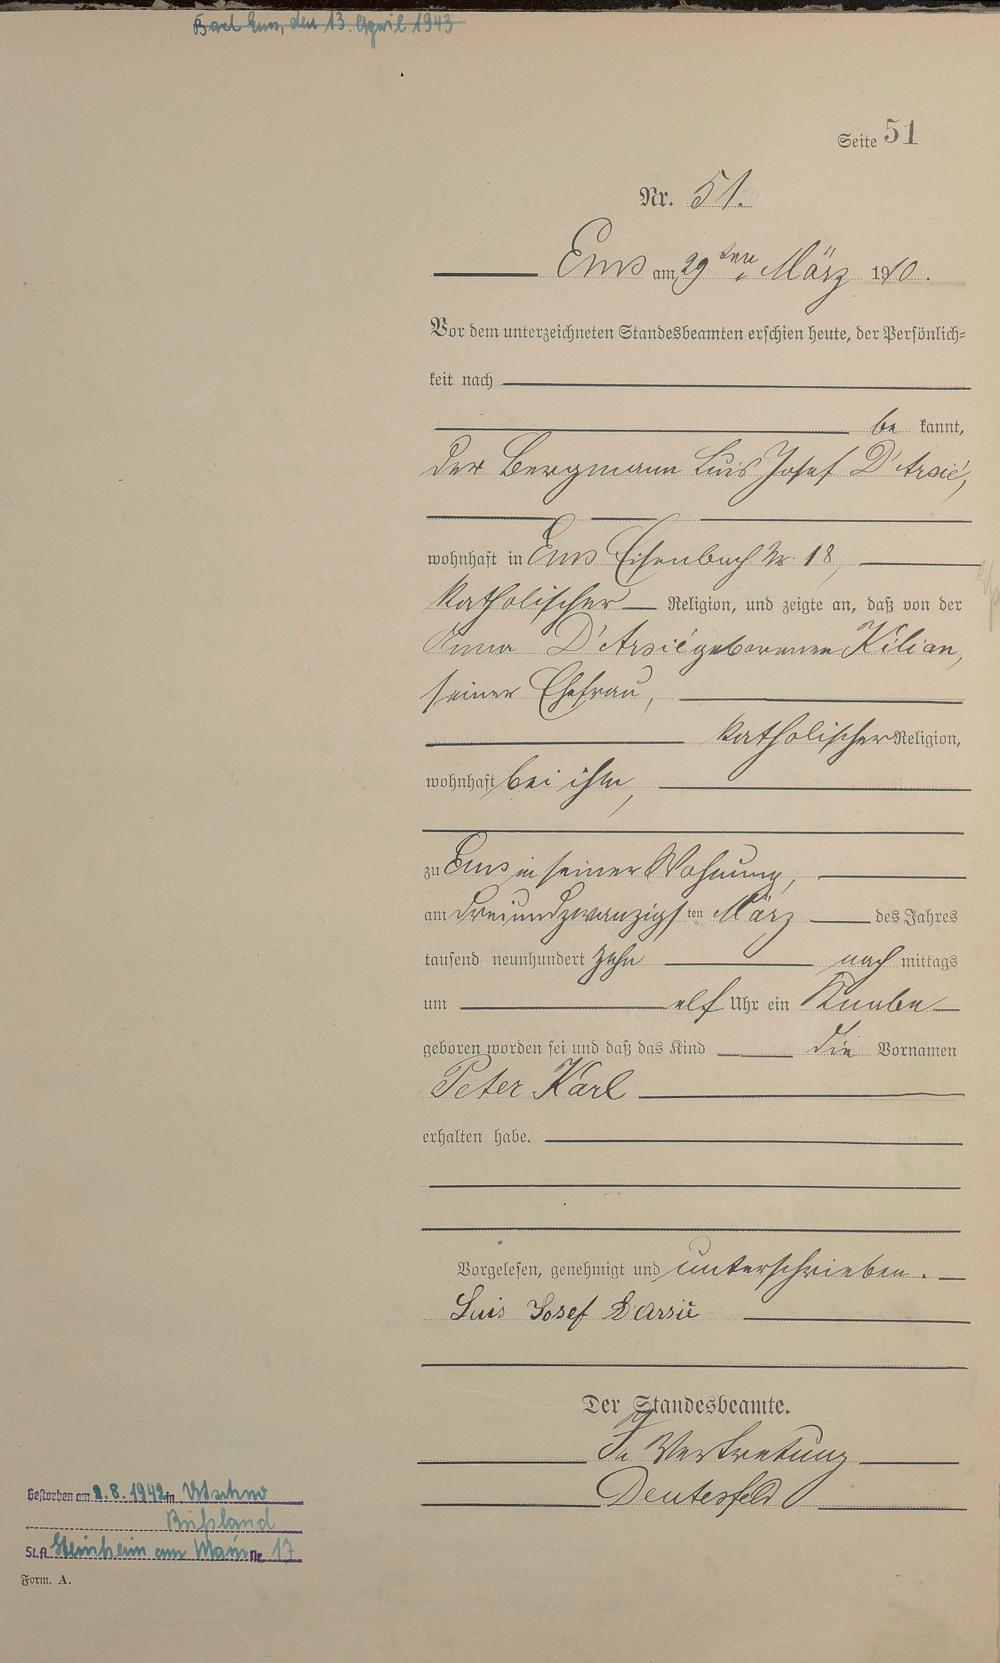 Bad Ems, den 13. April 1943
Seite 51
Nr. 51.
Ems am 29ten März 1910.
Vor dem unterzeichneten Standesbeamten erschien heute, der Persönlich-
keit nach
be kannt,
der Bergmann Luis Josef D'Arsié,
wohnhaft in Ems Eisenbach Nr. 18,
katholischer Religion, und zeigte an, daß von der
Anna D'Arsié geborenen Kilian,
seiner Ehefrau,
katholischer Religion,
wohnhaft bei ihm,
zu Ems in seiner Wohnung,
am dreiundzwanzigsten März des Jahres
tausend neunhundert zehn nach mittags
um elf Uhr ein Knabe
geboren worden sei und daß das Kind die Vornamen
Peter Karl
erhalten habe.
Vorgelesen, genehmigt und unterschrieben.
Luis Josef Darsié
Der Standesbeamte.
In Vertretung
Deutesfeld
Gestorben am 2.8.1942 in
Rußland
St.A. Steinheim am Main Nr. 17
Form. A.